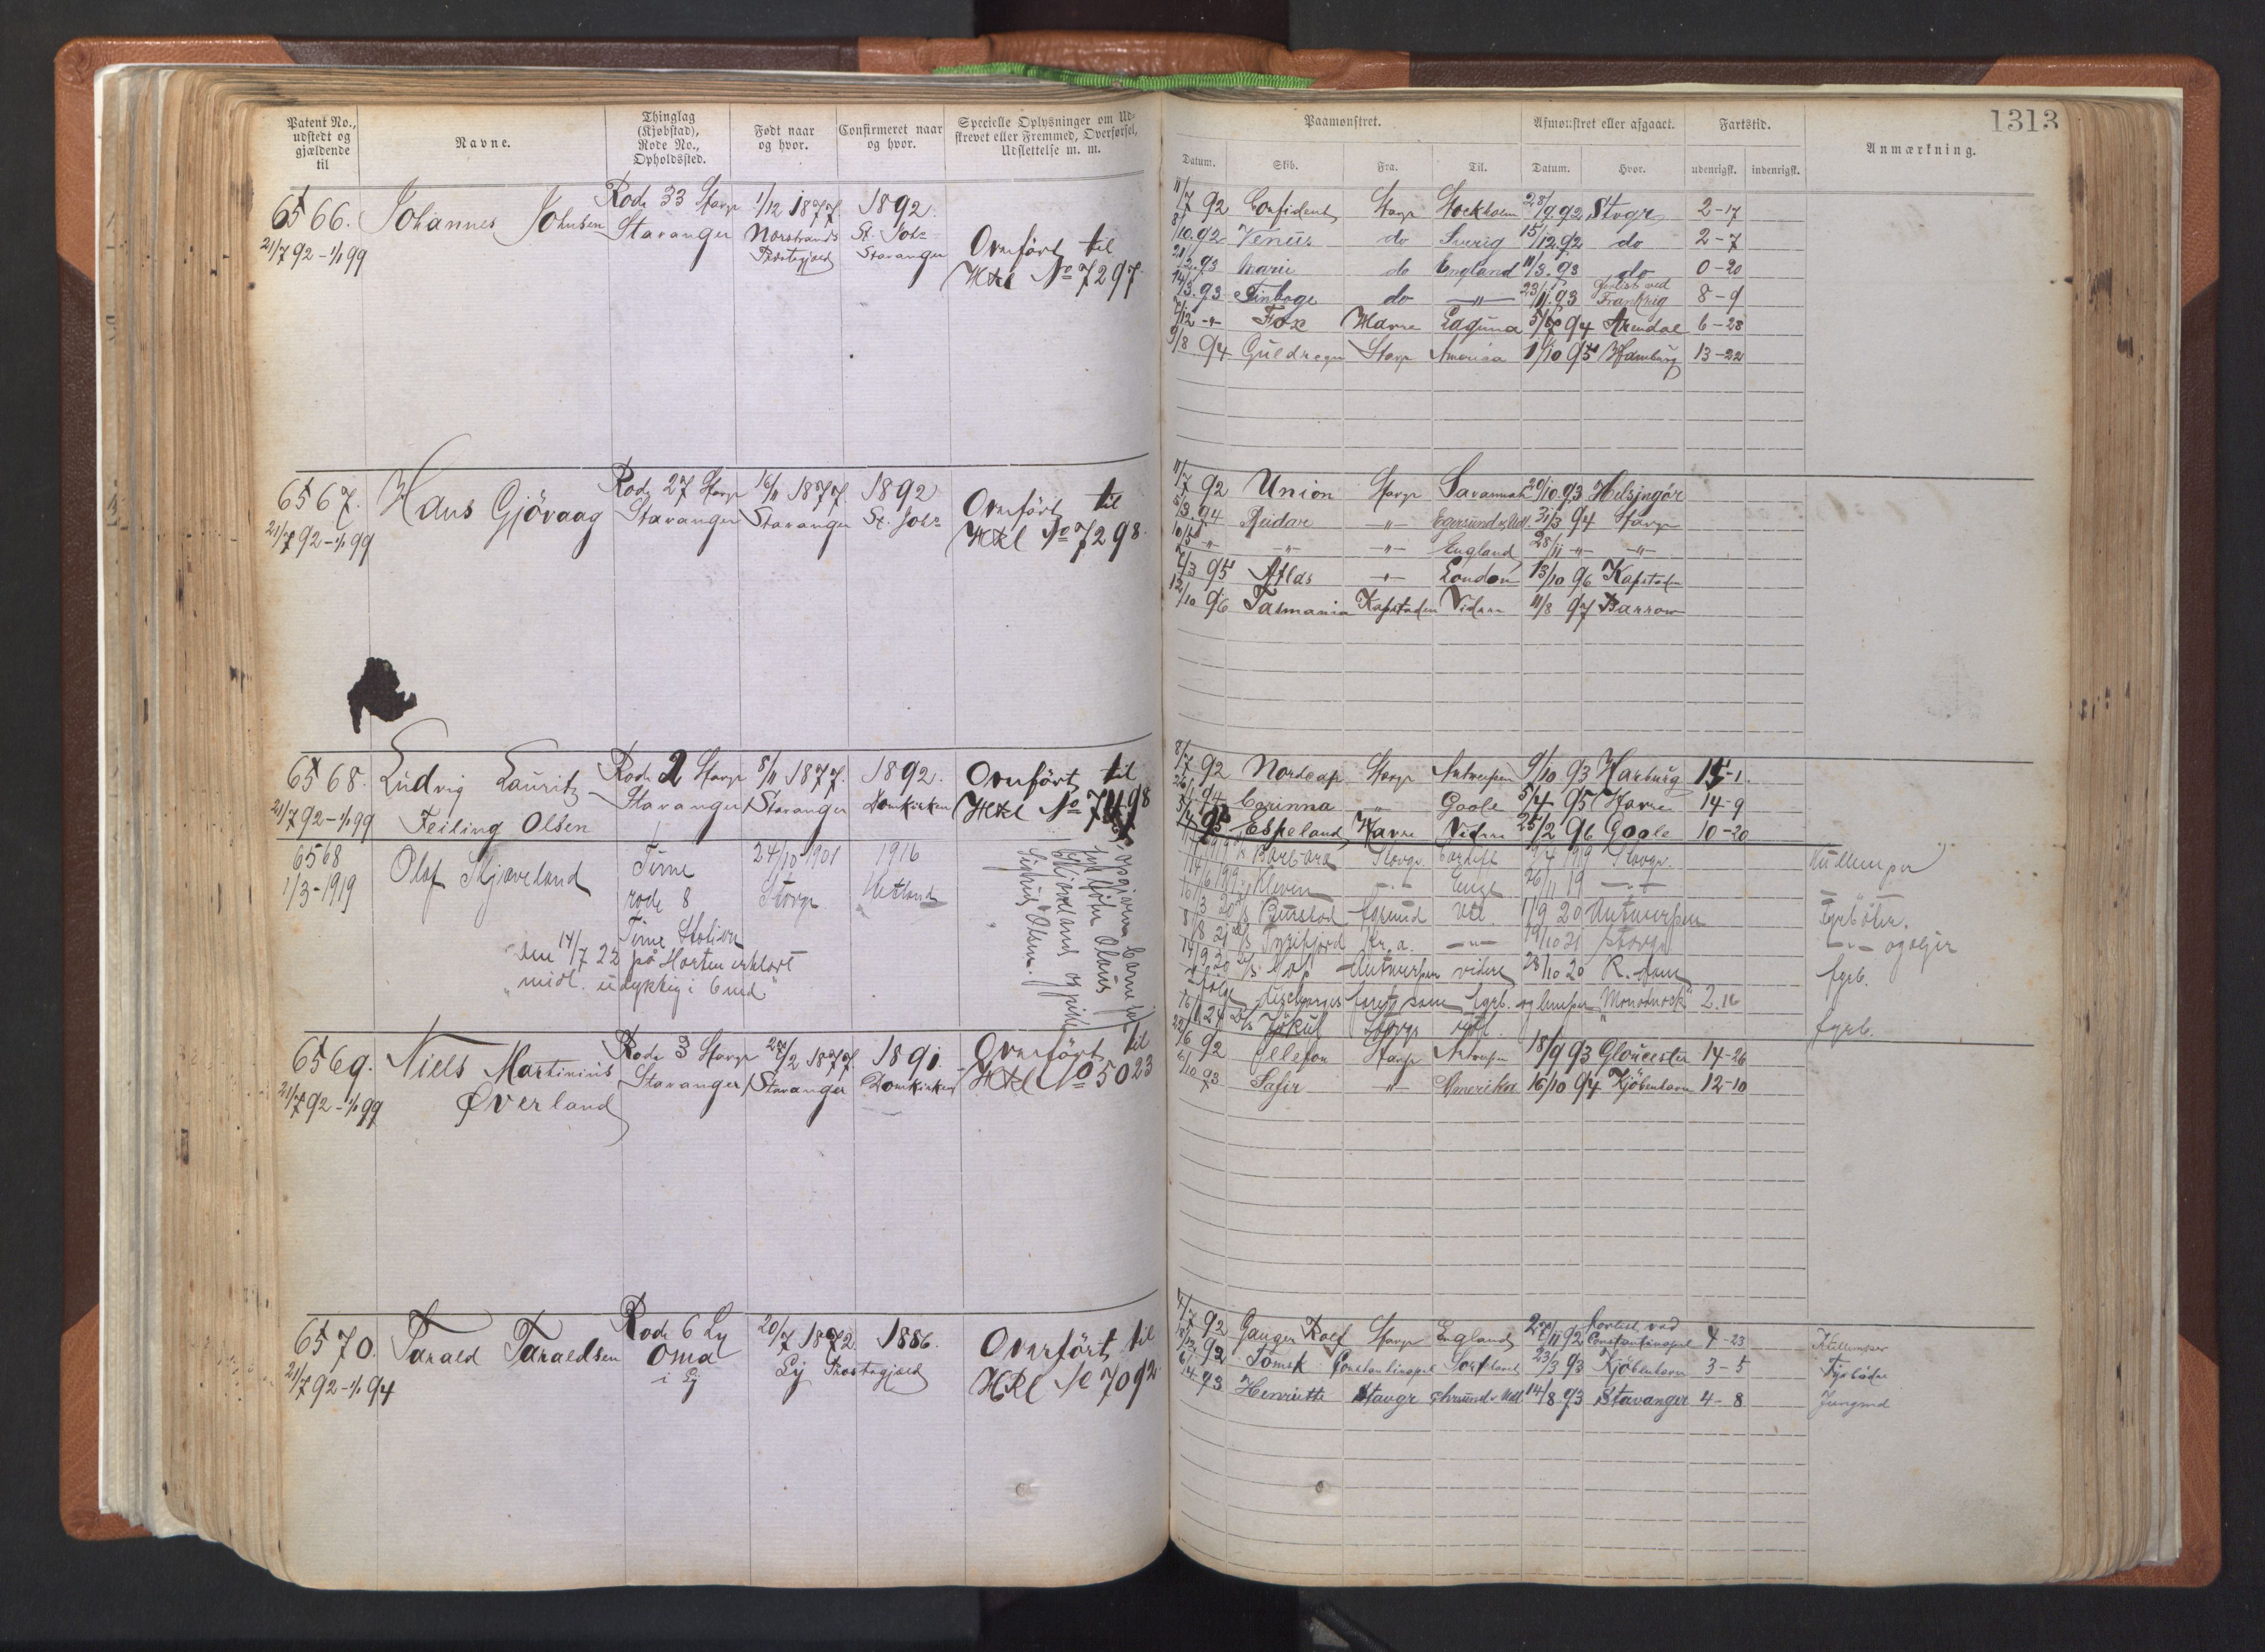 1313
Patent No., udstedt og gjældende til
Navne.
Thinglag (Kjøbstad), Rode No., Opholdssted.
Født naar og hvor.
Confirmeret naar og hvor.
Specielle Oplysninger om Udskrevet eller Fremmed, Overførsel, Udslettelse m. m.
Paamønstret.
Afmønstret eller afgaaet.
Fartstid.
Anmærkning.
Datum. Skib. Fra. Til. Datum. Hvor. udenrigsk. indenrigsk.
6566. Johannes Johnsen Rode 33 Stavgr 1/12 1877. 1892.
21/7 92 - 1/1 99 Stavanger Norstrands Præstegjeld St. Johs Stavanger
Overført til
Hkl No 7297.
11/7 92 Confidents Stavgr Stockholm 28/9 92 Stvgr 2-17
8/10.92 Venus do Sverig 15/12.92 do 2-7
21/2.93 Marie do England 11/3.93 do 0-20
14/3.93 Finboge do -"- 23/11.93 forlist ved Frankrig 8-9
7/12 -"- Fox Havre Laguna 5/7 94 Arendal 6-28
9/8 94 Guldregn Stavgr America 1/10 95 Hamburg 13-22
6567. Hans Gjövaag Rode 27 Stavgr 16/11 1877. 1892
21/7 92 - 1/1 99 Stavanger Stavanger St. Johs
Overført til
Hkl No 7298.
11/7 92 Union Stavgr Savannah 20/10.93 Helsingör
5/3 94 Reidar -"- Egersund & Udl. 31/3 94 Stavgr
10/5 -"- -"- -"- England 28/11 -"- -"-
7/3 95 Atlas -"- London 13/10 96 Kapstaden
12/10 96 Tasmania Kapstaden Videre 11/8 97 Barrow
6568. Ludvig Lauritz Rode 2 Stavgr 8/11 1877. 1892.
21/7 92 - 1/1 99 Feiling Olsen Stavanger Stavanger Domkirken
Overført til
Hkl No 7498
8/7 92 Nordcap Stavgr Antwerpen 9/10 93 Harburg 15-1.
94 Corinna " Goole 5/4 95 Havre 14-9
95 Espeland Havre Videre 25/2 96 Goole 10-20
6568 Olaf Skjæveland Time 24/10 1901 1916
1/3-1919 rode 8 Stavgr. Hetland
Time Station
den 14/7 22 på Horten erklært
"midl. udygktig i 6 md"
opgiver barne
Skjævelands og
Sigrid Olsen.
Barbara Stavgr. Cardiff 19 Stavgr. Kullemper
Kleven -"- Engl 26/11 19 -"- Fyrböter.
Burstad Egsund Utl. 1/9 20 Antwerpen
8/8 21 Tyrifjord Kr.a. -"- 19/10 21 Stavgr
14/9 20 Antwerpen videre 28/10 20 R.dam fyrb.
ifølge discharges faret som fyrb. og lemper "Monadnock" 2.16
24 Jøkul Stavgr utl. fyrb.
6569. Niels Martinius Rode 3 Stavgr 1877. 1891.
21/7 92 - 1/1 99 Øverland Stavanger Stavanger Domkirken
Overført til
Hkl No 5023
22/6 92 Ellefon Stavgr Antwerpen 18/9 93 Gloucester 14-26
10 93 Safir " Amerika 16/10 94 Kjöbenhavn 12-10
6570. Tarald Taraldsen Rode 6 Ly 20/7 1872. 1886.
21/7 92 - 1/1 94 Oma i Ly Ly Præstegjeld
Overført til
Hkl No 7092.
4/7 92 Ganger Rolf Stavgr England 27/11 92 forlist ved Constantinopel 4-23 Kullemper
92 Tomsk Constantinopel Sortehavet 23/3 93 Kjöbenhavn 3-5 Fyrböder
93 Henriette Stavgr Chrsund & Udl 14/8.93 Stavanger 4-8 Jungmd